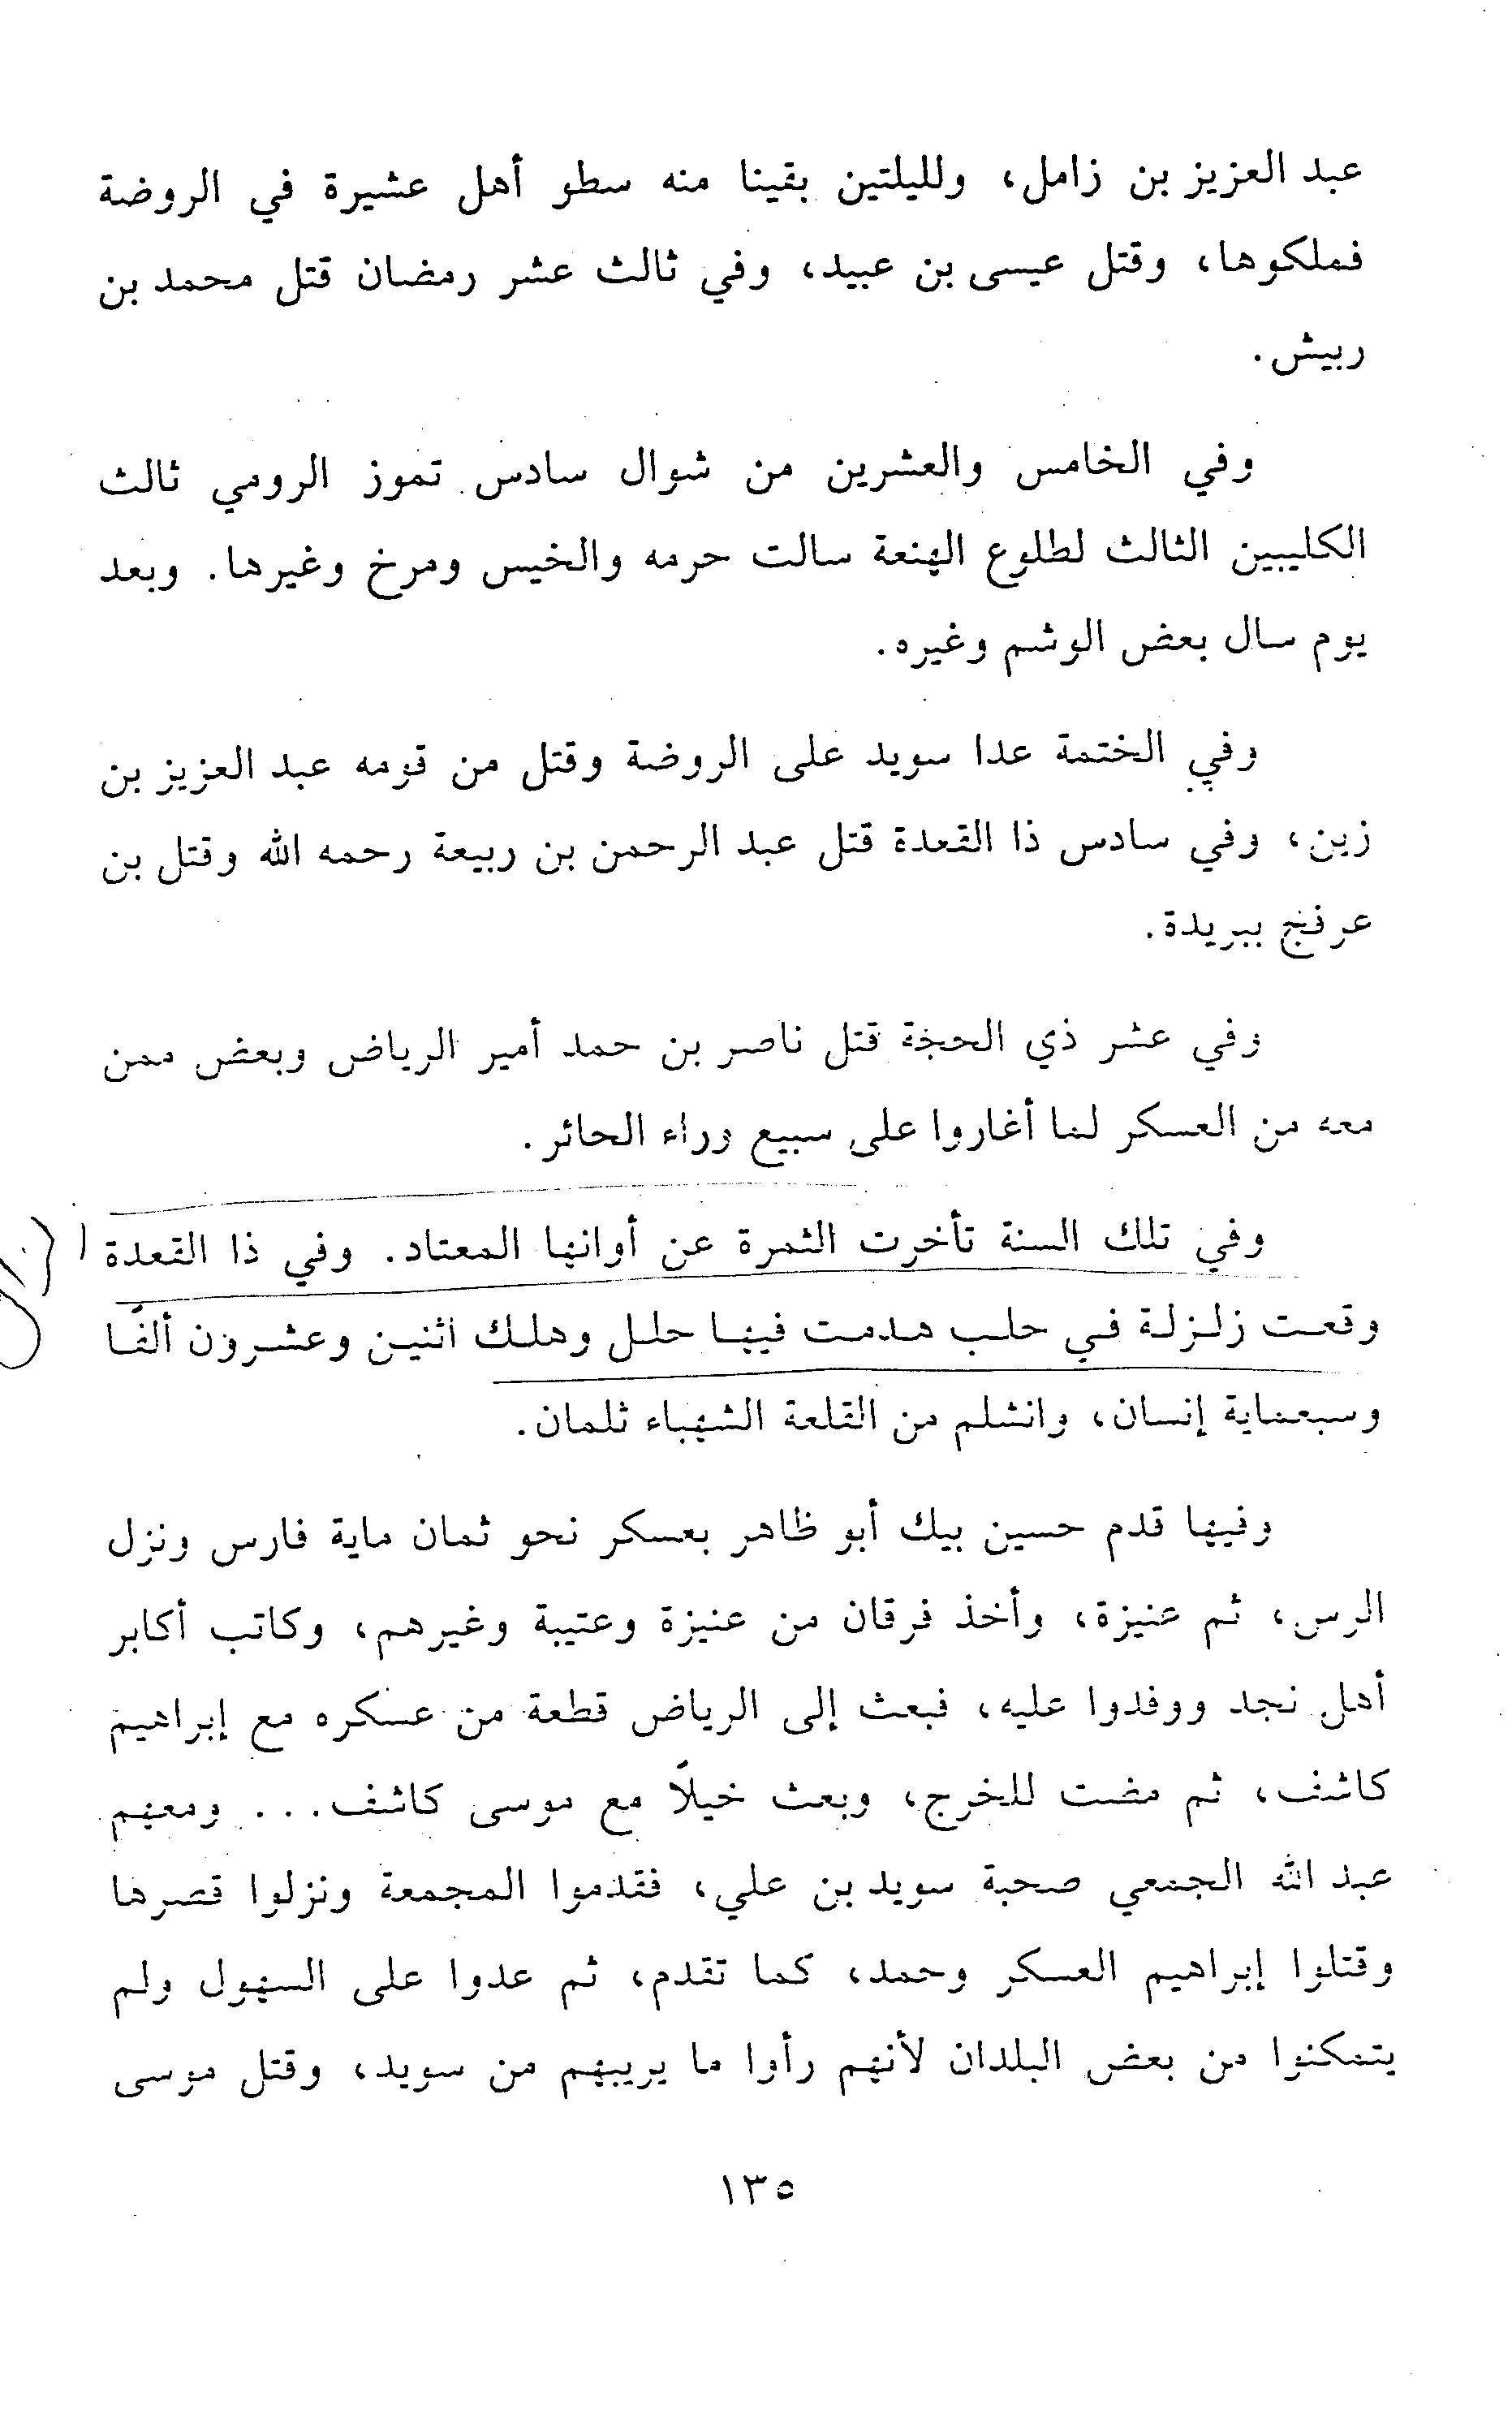 عبد العزيز بن زامل، ولليلتين بقينا منه سطو أهل عشيرة في الروضة
فملكوها، وقتل عيسى بن عبيد، وفي ثالث عشر رمضان قتل محمد بن
ربيش.
وفي الخامس والعشرين من شوال سادس تموز الرومي ثالث
الكليبين الثالث لطلوع الهنعة سالت حرمه والخيس ومرخ وغيرها. وبعد
يوم سال بعض الوشم وغيره.
وفي الختمة عدا سويد على الروضة وقتل من قومه عبد العزيز بن
زين، وفي سادس ذا القعدة قتل عبد الرحمن بن ربيعة رحمه الله وقتل بن
عرفج ببريدة.
وفي عشر ذي الحجة قتل ناصر بن حمد أمير الرياض وبعض ممن
معه من العسكر لما أغاروا على سبيع وراء الحائر.
وفي تلك السنة تأخرت الثمرة عن أوانها المعتاد. وفي ذا القعدة
وقعت زلزلة في حلب هدمت فيها حلل وهلك اثنين وعشرون ألفًا
وسبعماية إنسان، وانشلم من القلعة الشهباء ثلمان.
وفيها قدم حسين بيك أبو ظاهر بعسكر نحو ثمان ماية فارس ونزل
الرس، ثم عنيزة، وأخذ فرقان من عنيزة وعتيبة وغيرهم، وكاتب أكابر
أهل نجد ووفدوا عليه، فبعث إلى الرياض قطعة من عسكره مع إبراهيم
كاشف، ثم مضت للخرج، وبعث خيلًا مع موسى كاشف... ومعهم
عبد الله الجمعي صحبة سويد بن علي، فقدموا المجمعة ونزلوا قصرها
وقتلوا إبراهيم العسكر وحمد، كما تقدم، ثم عدوا على السهول ولم
يتمكنوا من بعض البلدان لأنهم رأوا ما يريبهم من سويد، وقتل موسى
١٣٥